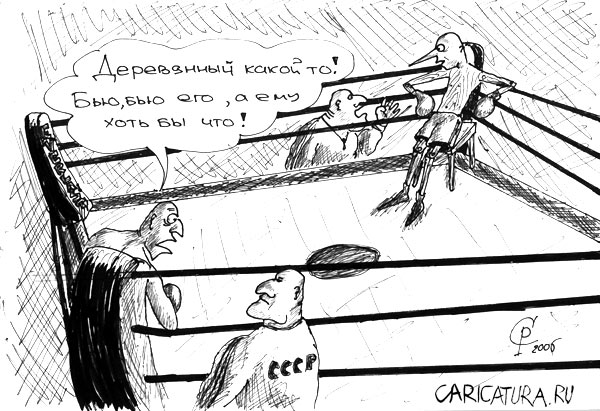 Деревянный какой то!
Бью, бью его, а ему
хоть бы что!
СССР
2006
CARICATURA.RU